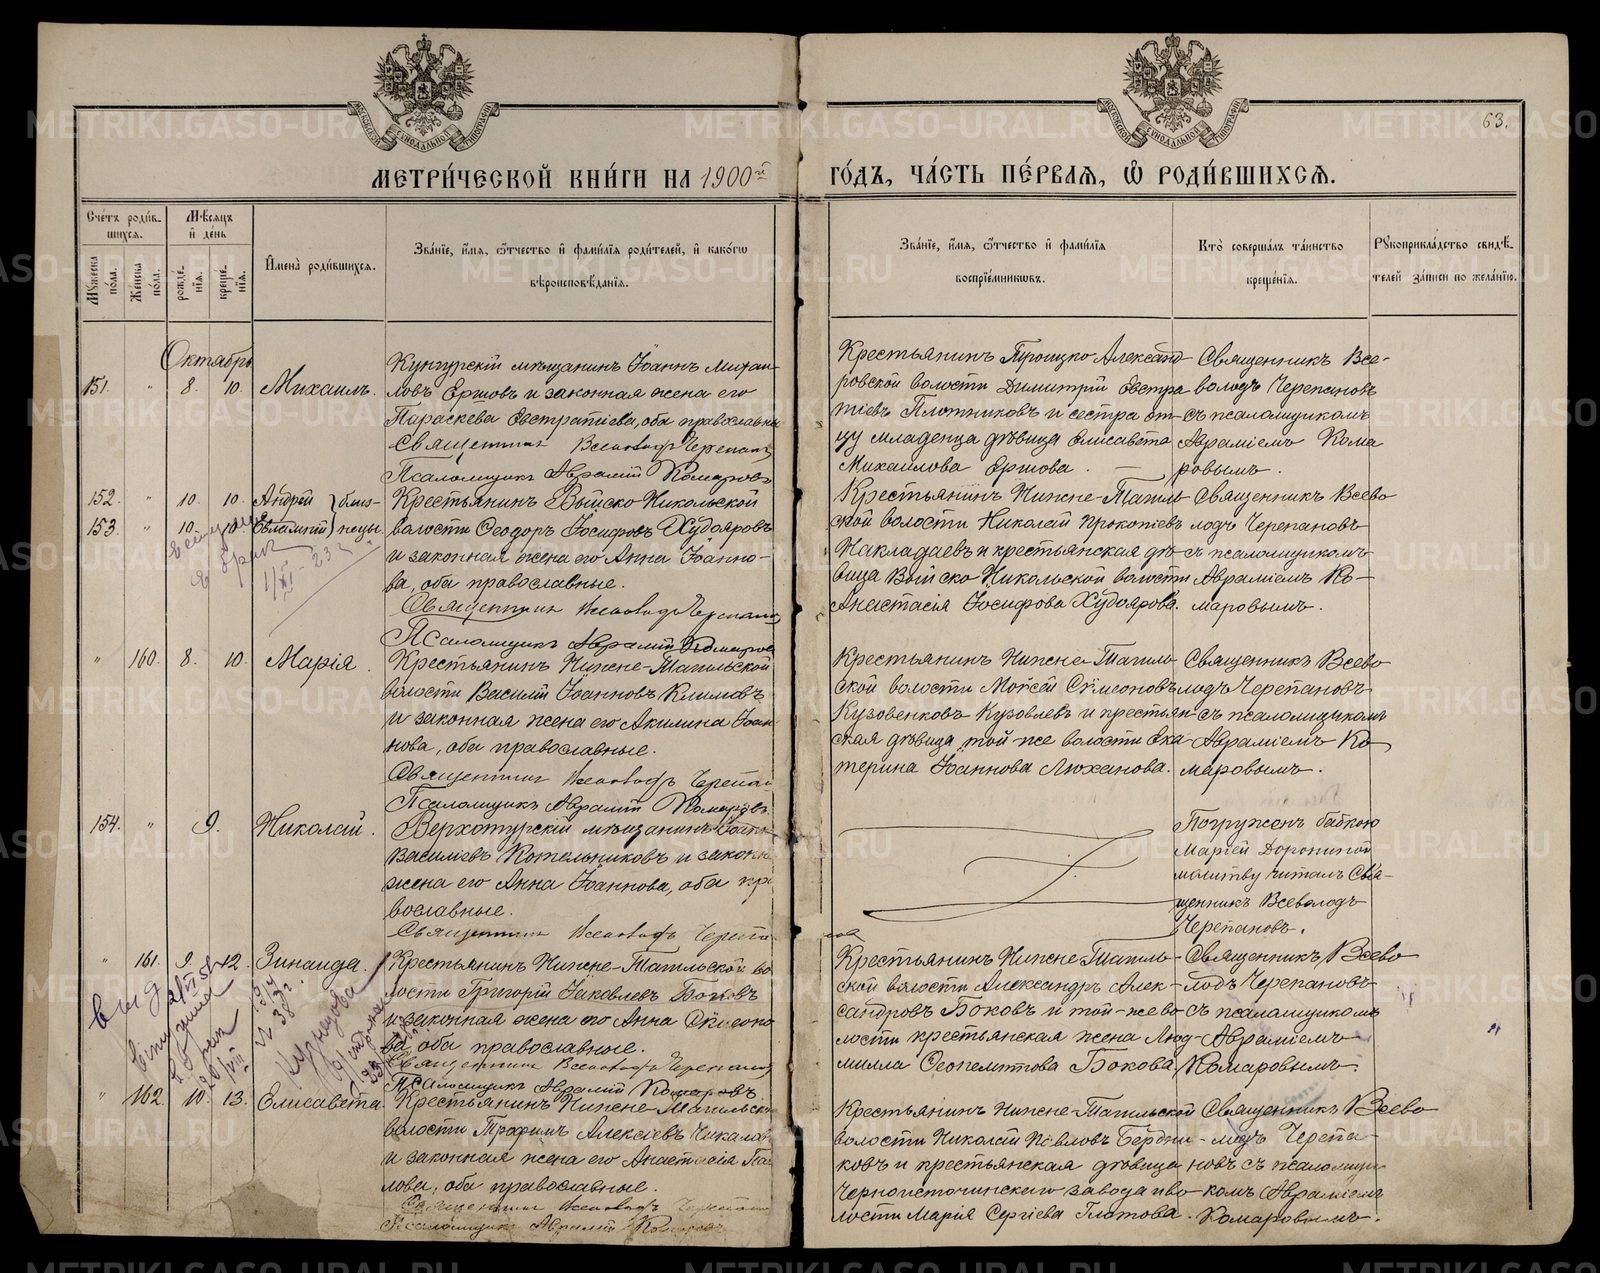 63.
МЕТРИ́ЧЕСКОЙ КНИ́ГИ НА 1900й ГО́ДЪ, ЧА́СТЬ ПЕ́РВАЯ, Ѡ РОДИ́ВШИХСѦ.
Сче́тъ роди́в-
шихсѧ.
Мꙋ́жеска по́ла.
Же́нска по́ла.
Мѣ́сѧцъ
и҆ де́нь
рожде́-
нїѧ.
креще́-
нїѧ.
И҆мена̀ роди́вшихсѧ.
Зва́нїе, и҆́мѧ, ѻ҆́тчество и҆ фами́лїѧ роди́телей, и҆ како́гѡ
вѣроисповѣ́данїѧ.
Зва́нїе, и҆́мѧ, ѻ҆́тчество и҆ фами́лїѧ
воспрїе́мниковъ.
Кто̀ соверша́лъ та́инство
креще́нїѧ.
Рꙋкоприкла́дство свидѣ́-
телей за́писи по жела́нїю.
Октябрь
151. " 8. 10. Михаилъ.
Кунгурскій мѣщанинъ Іоаннъ Михаи-
ловъ Ершовъ и законная жена его
Параскева Евстратіева, оба православны
Священникъ Всеволодъ Черепанъ
Псаломщикъ Аврамій Комаровъ
Крестьянинъ Троицко-Александ-
ровской волости Димитрій Евстра
тіевъ Плотниковъ и сестра от-
цу младенца дѣвица Елисавета
Михаилова Ершова.
Священникъ Все-
володъ Черепановъ
съ псаломщикомъ
Авраміемъ Кома
ровымъ.
152. " 10. 10. Андрей } близ-
153. " 10. 10. Евлампій } нецы.
Крестьянинъ Выйско-Никольской
волости Ѳеодоръ Іосифовъ Худояровъ
и законная жена его Анна Іоанно-
ва, оба православные.
Священникъ Всеволодъ Черепанъ
Псаломщикъ Аврамій Комаровъ
Крестьянинъ Нижне-Тагиль
ской волости Николай Прокопіевъ
Накладаевъ и крестьянская дѣ-
вица Выйско-Никольской волости
Анастасія Іосифова Худоярова.
Священникъ Всево
лодъ Черепановъ
съ псаломщикомъ
Авраміемъ Ко-
маровымъ.
" 160. 8. 10. Марія.
Крестьянинъ Нижне-Тагильской
волости Василій Іоанновъ Климовъ
и законная жена его Акилина Іоан
нова, оба православные.
Священникъ Всеволодъ Черепан
Псаломщикъ Аврамій Комаровъ
Крестьянинъ Нижне-Тагиль
ской волости Моисей Сѵмеоновъ
Кузовенковъ Кузовлевъ и крестьян-
ская дѣвица той-же волости Ека
терина Іоаннова Люханова.
Священникъ Всево
лодъ Черепановъ
съ псаломщикомъ
Авраміемъ Ко
маровымъ.
154. " 9. Николай.
Верхотурскій мѣщанинъ Іоаннъ
Василіевъ Котельниковъ и законн
жена его Анна Іоаннова, оба пра
вославные.
Священникъ Всеволодъ Черепа
нов
Погруженъ бабкою
Маріей Дорониной
молитву читалъ Свя-
щенникъ Всеволодъ
Черепановъ.
" 161. 9. 12. Зинаида.
Крестьянинъ Нижне-Тагильской во
лости Григорій Іаковлевъ Боковъ
и законная жена его Анна Сѵмеоно
ва, оба православные.
Священникъ Всеволодъ Черепанъ
Псаломщикъ Аврамій Комаровъ
Крестьянинъ Нижне Тагиль-
ской волости Александръ Алек-
сандровъ Боковъ и той-же во
лости крестьянская жена Люд-
милла Ѳеопемптова Бокова
Священникъ Всево
лодъ Черепановъ
съ псаломщикомъ
Авраміемъ
Комаровымъ.
" 162. 10. 13. Елисавета.
Крестьянинъ Нижне-Тагильско
волости Трофимъ Алексіевъ Чикалов
и законная жена его Анастасія Пав
лова, оба православные.
Священникъ Всеволодъ Черепано
Псаломщикъ Аврамій Комаровъ
Крестьянинъ Нижне-Тагильской
волости Николай Павловъ Бердни-
ковъ и крестьянская дѣвица
Черноисточинскаго завода и во
лости Марія Сергіева Глотова.
Священникъ Всево
лодъ Черепа-
новъ съ псаломщи
комъ Авраміемъ
Комаровымъ.
METRIKI.GASO-URAL.RU